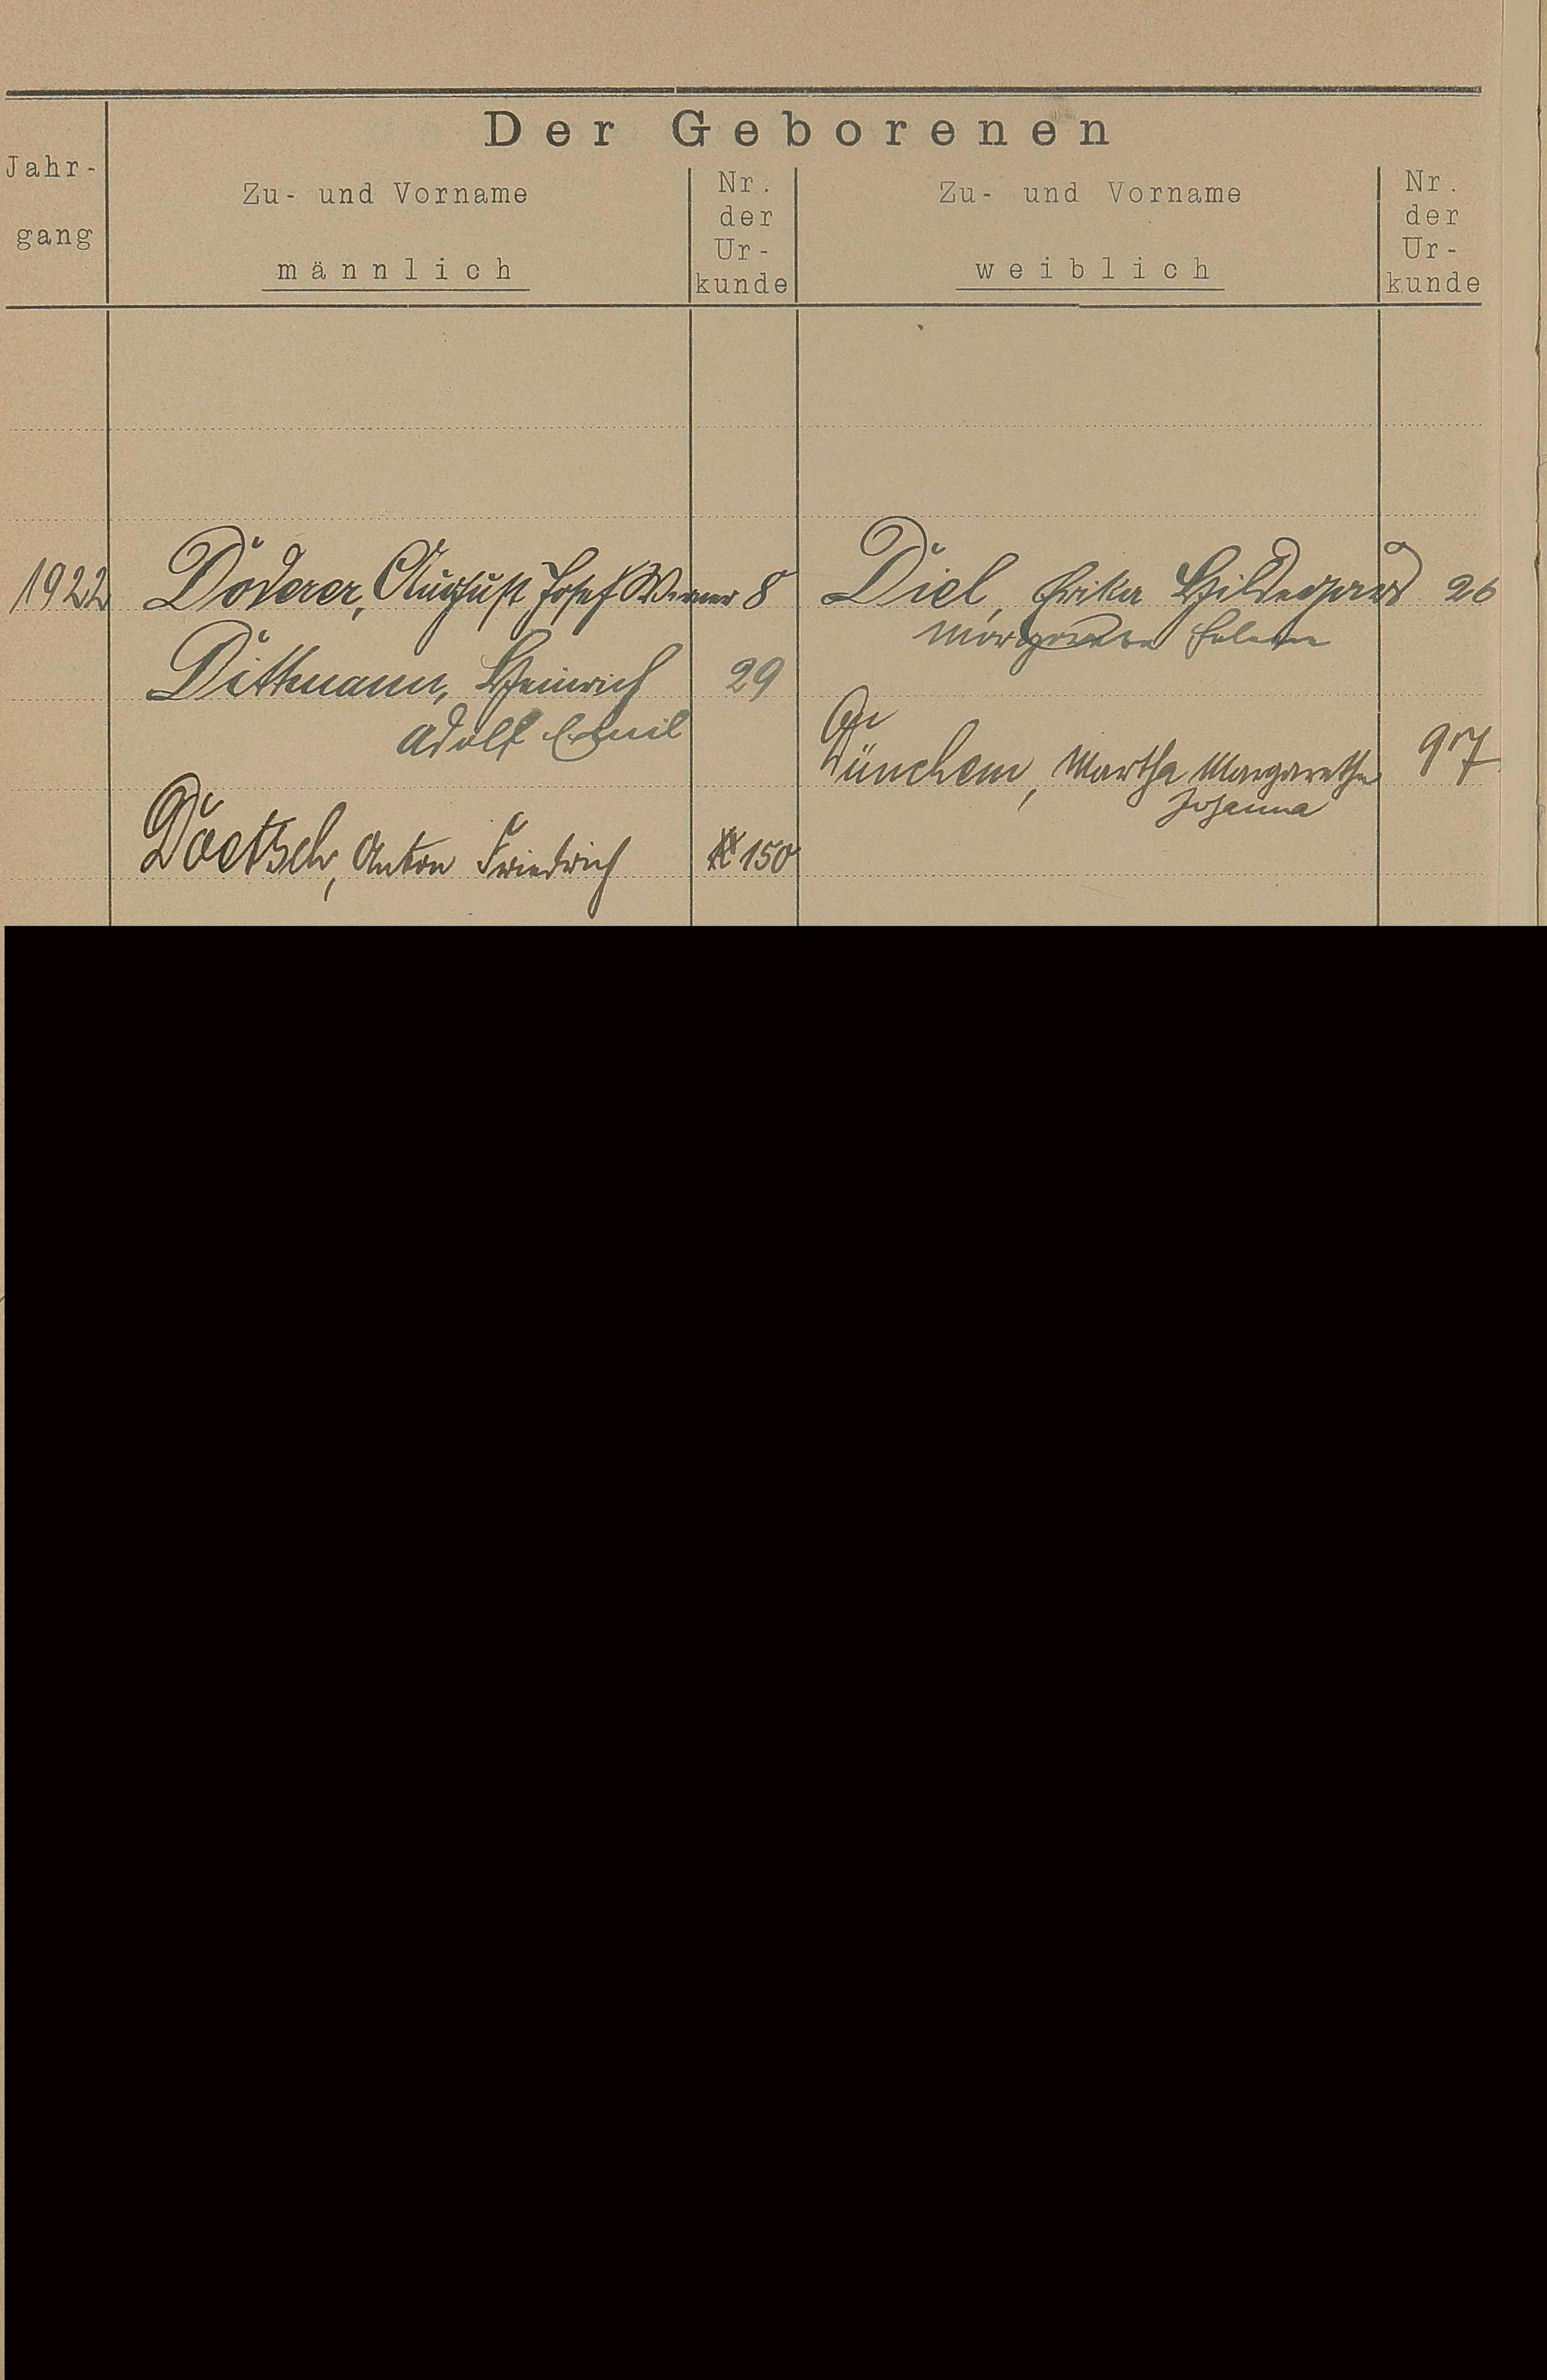 Der Geborenen
Jahr-
gang
Zu- und Vorname
männlich
Nr.
der
Ur-
kunde
Zu- und Vorname
weiblich
Nr.
der
Ur-
kunde
1922 Döderer, August Josef Werner 8 Diel, Erika Hildegard 26
Margareta Helene
Dittmann, Heinrich 29
Adolf Emil
Dünchem, Martha Margaretha 97
Johanna
Doetsch, Anton Friedrich 150